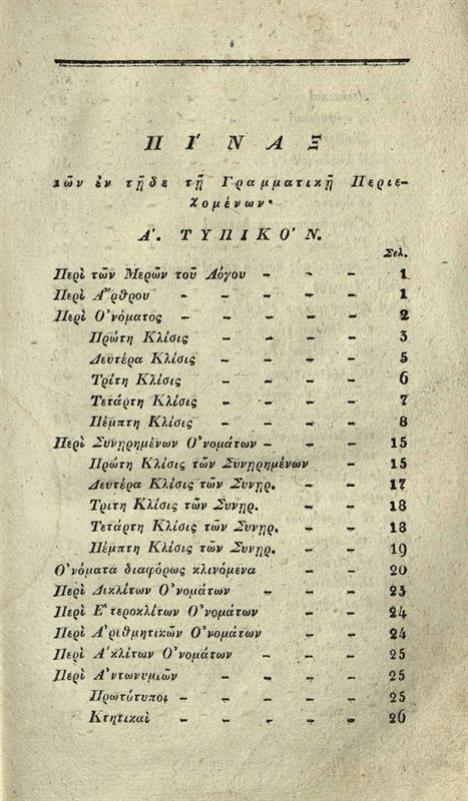 ΠΙ΄ΝΑΞ
τῶν ἐν τῇδε τῇ Γραμματικῇ Περιε-
χομένων·
Α΄. ΤΥΠΙΚΟ΄Ν.
Σελ.
Περὶ τῶν Μερῶν τοῦ Λόγου - - - 1
Περὶ Α῎ρθρου - - - - - 1
Περὶ Ο᾽νόματος - - - - - 2
Πρώτη Κλίσις - - - - 3
Δευτέρα Κλίσις - - - - 5
Τρίτη Κλίσις - - - - 6
Τετάρτη Κλίσις - - - - 7
Πέμπτη Κλίσις - - - - 8
Περὶ Συνῃρημένων Ο᾽νομάτων - - - - 15
Πρώτη Κλίσις τῶν Συνῃρημένων - 15
Δευτέρα Κλίσις τῶν Συνῃρ. - - 17
Τριτη Κλίσις τῶν Συνῃρ. - - 18
Τετάρτη Κλίσις τῶν Συνῃρ. - - 18
Πέμπτη Κλίσις τῶν Συνῃρ. - - 19
Ο᾽νόματα διαφόρως κλινόμενα - - 20
Περὶ Δικλίτων Ο᾽νομάτων - - - 23
Περὶ Ε῾τεροκλίτων Ο᾽νομάτων - - 24
Περὶ Α᾽ριθμητικῶν Ο᾽νομάτων - - 24
Περὶ Α᾽κλίτων Ο᾽νομάτων - - - 25
Περὶ Α᾽ντωνυμιῶν - - - - 25
Πρωτότυποι - - - - - 25
Κτητικαὶ - - - - - 26